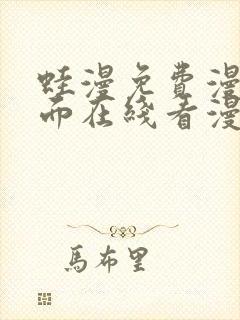 蛙漫免費漫
而在綫看漫
馬布里